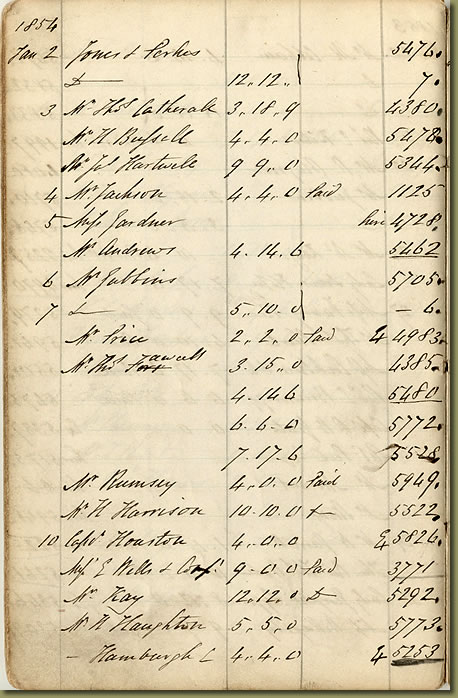 1854
Jan 2 Jones & Perkes 5476.
Do 12.,12., 7.
3 Mr Thos Catherall 3.,18.,9 4380.
Mr H Bussell 4.,4.,0 5478.
Mr Js Hartwell 9.,9.,0 5344.
4 Mr Jackson 4.,4.,0 Paid 1125
5 Miss Gardner hire 4728.
Mr Andrews 4.,14.,6 5462
6 Mr Gubbins 5705.
7 5.,10.,0 – 6.
Mr Price 2.,2.,0 Paid 4983.
Mr Thos Fawcett 3.,15.,0 4385.
4.,14.,6 5480
6.,6.,0 5772.
7.,17.,6 5528
Mr Rumsey 4.,0.,0 Paid 5949.
Mr H Harrison 10.,10.,0 5522.
10 Captn Houston 4.,0.,0 5826.
E Wells & 9.,0.,0 Paid 3771
Mr Kay 12.,12.,0 5292.
Mr H Haughton 5.,5.,0 5773.
– Hamburgh 4.,4.,0 5253